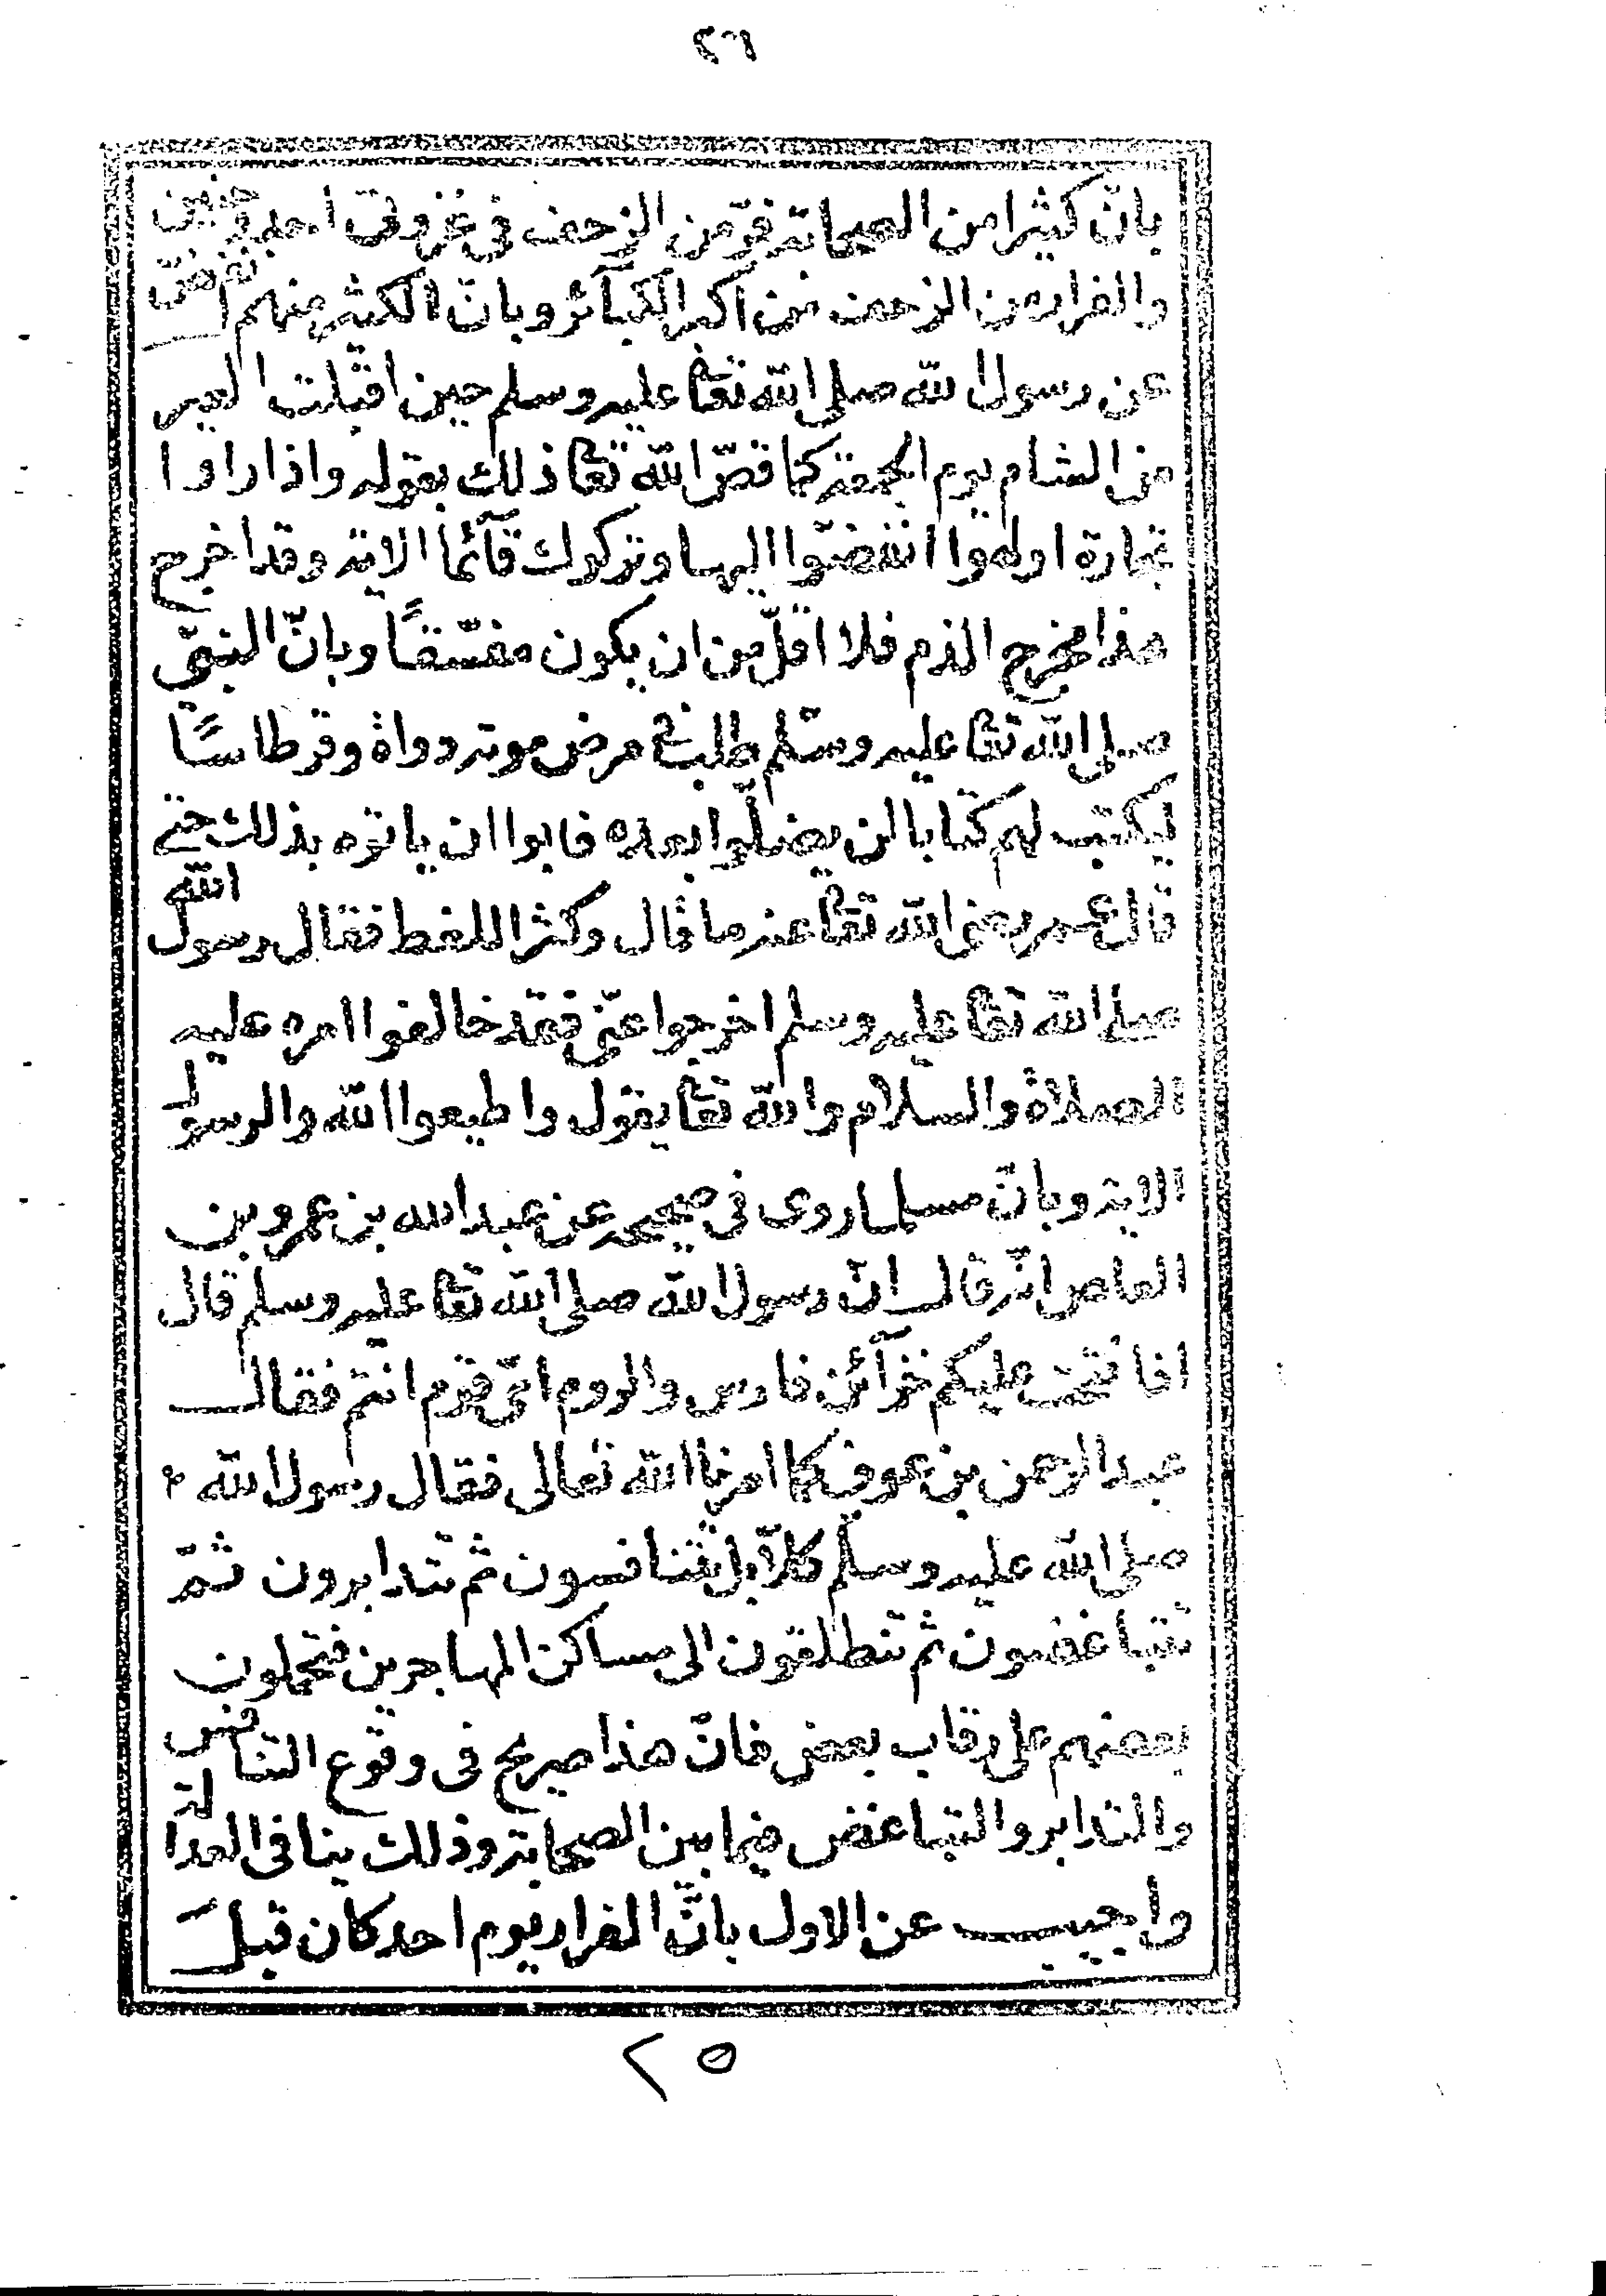 ٢٦
بانّ كثيرا من الصحابة فرّ من الزحف فى غزوتى احد وحنين
والفرار من الزحف من اكبر الكبآئر وبانّ الكثير منهم انفضّ
عن رسول الله صلى الله تعا عليه وسلم حين اقبلت العير
من الشام يوم الجمعة كما قصّ الله تعا ذلك بقوله واذا راوا
تجارة اولهوا انفضّوا اليها وتركوك قآئما الاية وقد اخرج
هذا مخرج الذم فلا اقلّ من ان يكون مفسّقًا وبانّ النبىّ
صلى الله تعا عليه وسلّم طلب فى مرض موته دواة وقرطاسًا
ليكتب لهم كتابا لن يضلّوا بعده فابوا ان ياتوه بذلك حتى
قال عمر رضى الله تعا عنه ما قال وكثر اللغط فقال رسول الله
صلى الله تعا عليه وسلم اخرجوا عنّى فقد خالفوا امره عليه
الصلاة والسلام والله تعا يقول واطيعوا الله والرسول
الاية وبانّ مسلما روى فى صحيحه عن عبد الله بن عمرو بن
العاص انّه قال انّ رسول الله صلى الله تعا عليه وسلم قال
اذا فتحت عليكم خزآئن فارس والروم اىّ قوم انتم فقال
عبد الرحمن بن عوف كما امرنا الله تعالى فقال رسول الله
صلى الله عليه وسلّم كلاّ بل تتنافسون ثم تتدابرون ثمّ
تتباغضون ثم تنطلقون الى مساكن المهاجرين فتحملون
بعضهم على رقاب بعض فانّ هذا صريح فى وقوع التنافس
والتدابر والتباغض فيما بين الصحابة وذلك ينافى العدالة
واجيب عن الاول بانّ الفرار يوم احد كان قبل
٢٥